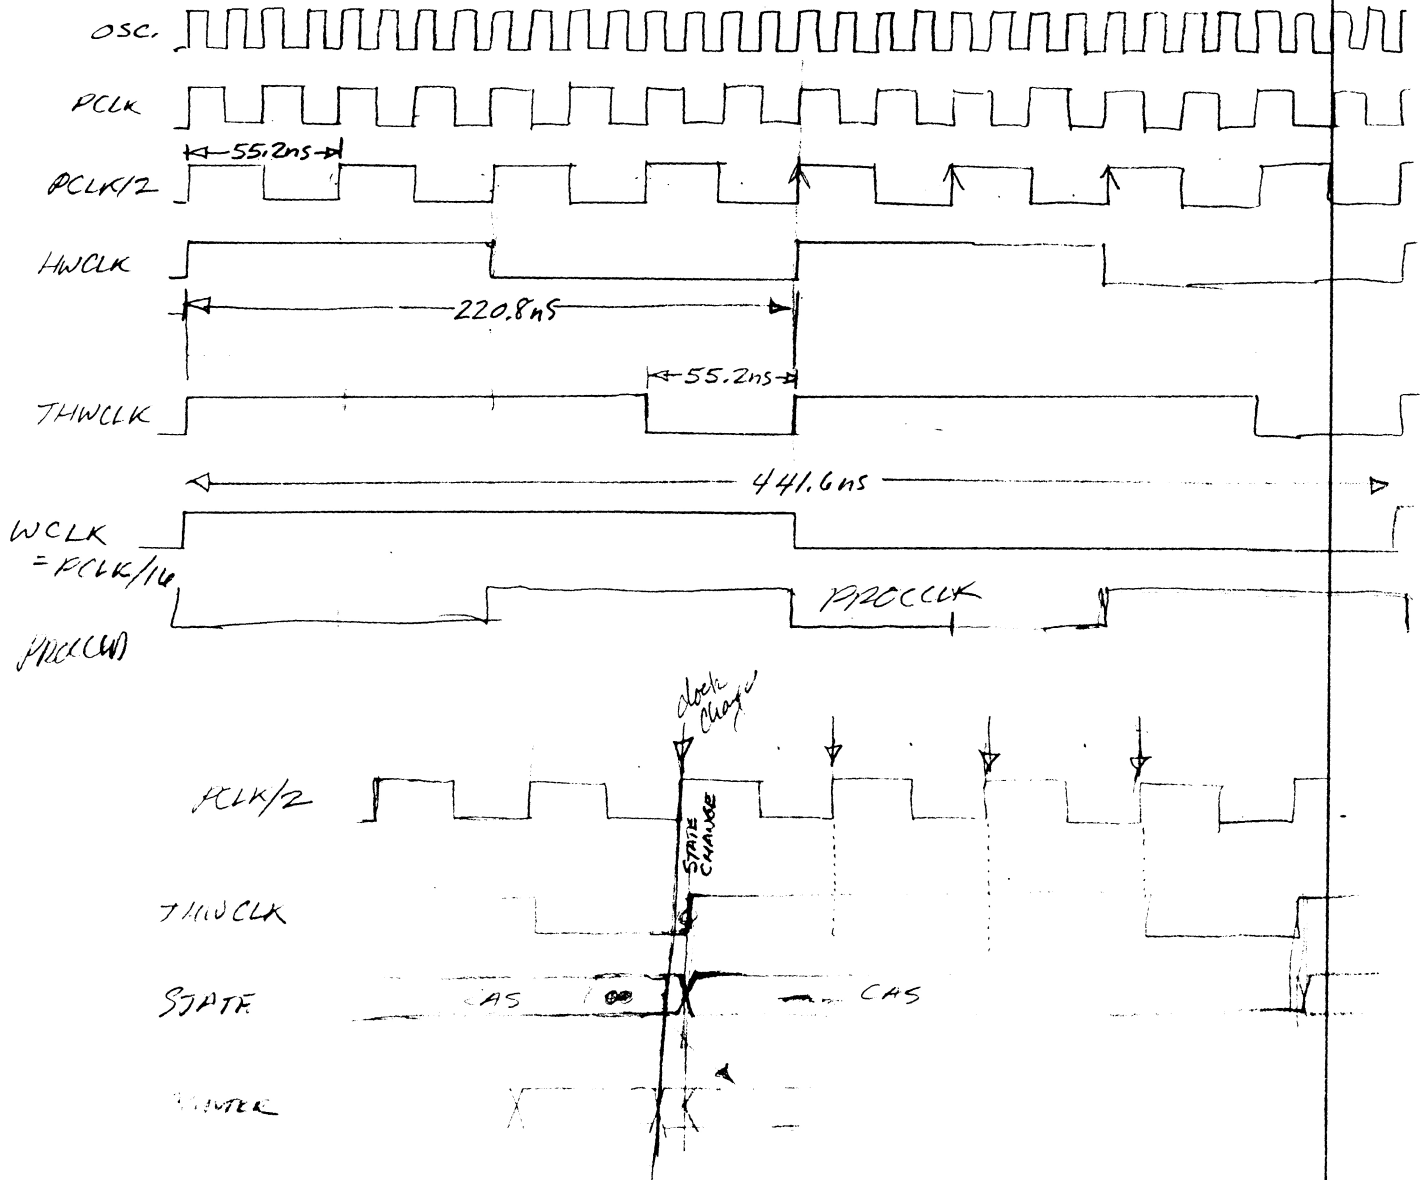 OSC.
PCLK
55.2ns
PCLK/2
HWCLK
220.8nS
55.2ns
THWCLK
441.6ns
WCLK
= PCLK/16
PROCCLK
clock
change
PCLK/2
STATE
CHANGE
THWCLK
STATE
CAS
CAS